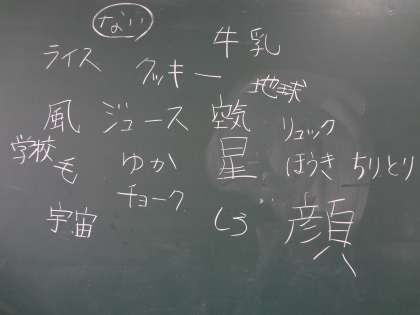 ない
牛乳
ライス クッキー
地球
風 ジュース 空気 リュック
学校 星 ほうき ちりとり
ゆか
チョーク
宇宙 顔